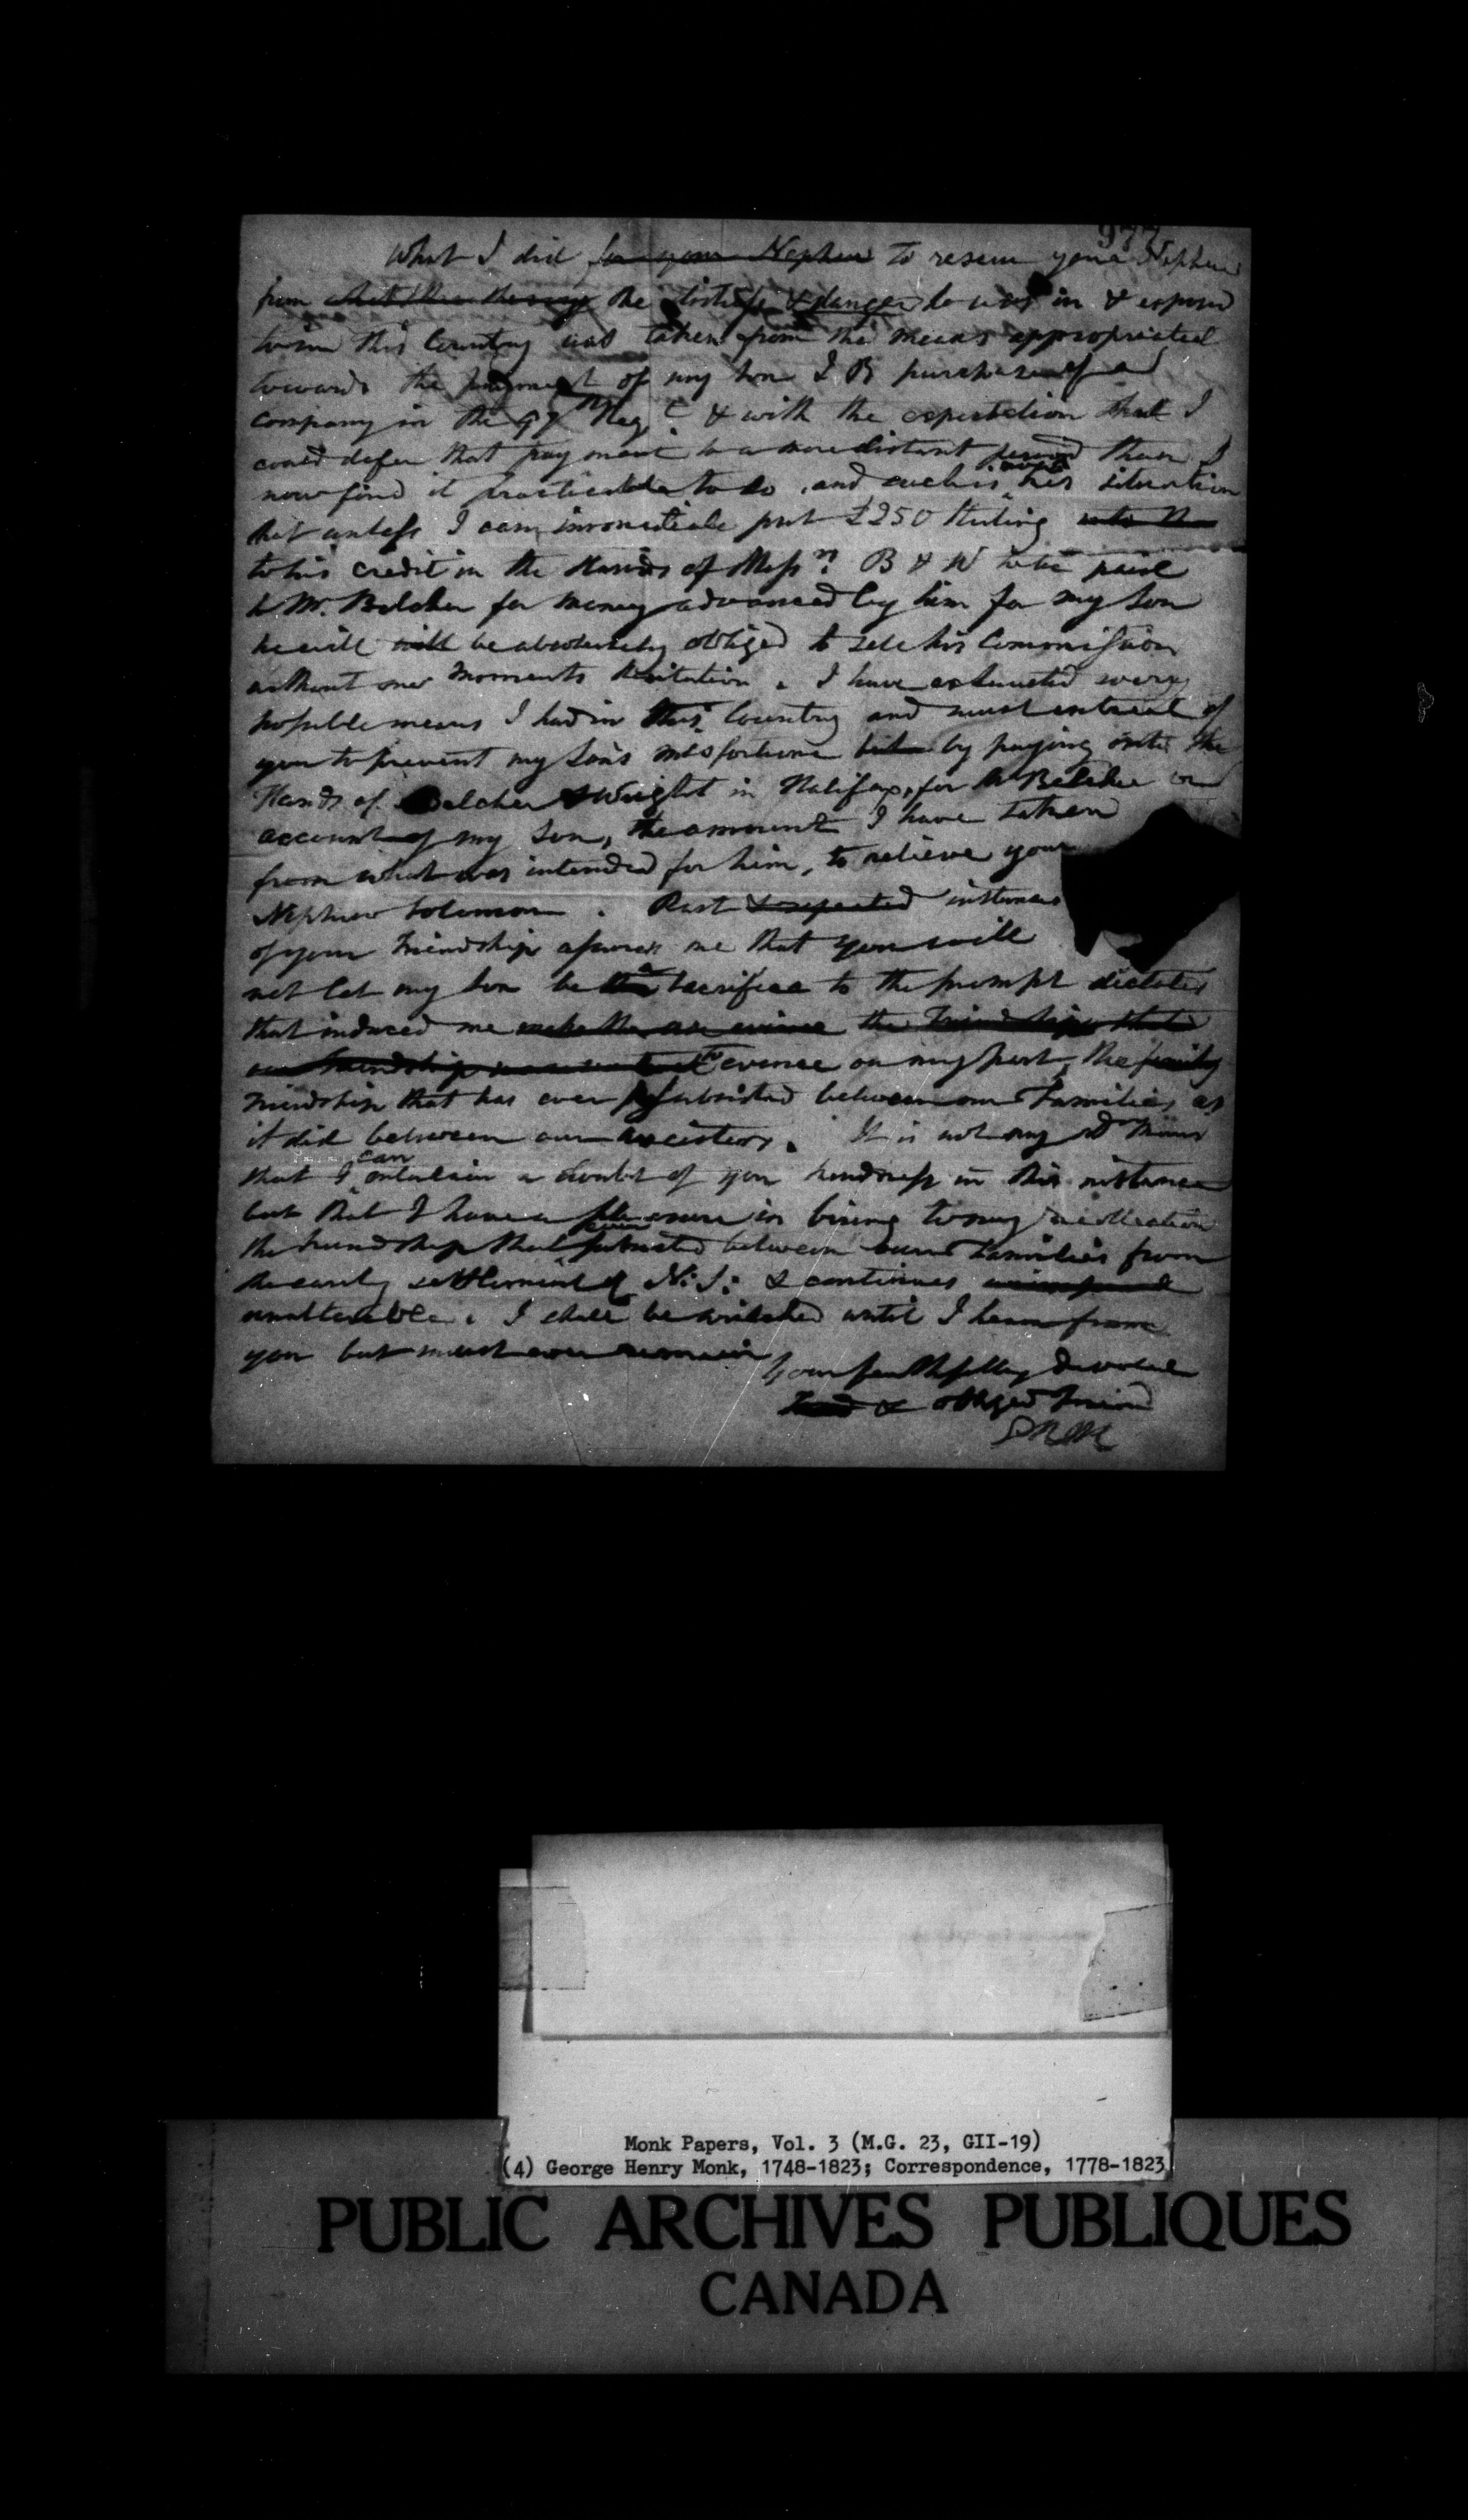 977
What I did for your Nephew to rescue your Nephew
from the distress & danger he was in & exposed
to in this Country was taken from the means appropriated
towards the payment of my Son I B purchase of a
company in the 97th Regt. & with the expectation that I
could defer that payment to a more distant period than I
now find it practicable to do, and such is now his situation
that unless I can immediate put £250 Sterling into the
to his credit in the Hands of Messrs. B & W to be paid
to Mr. Belcher for money advanced by him for my Son
he will will be absolutely obliged to sell his Commission
without one moments hesitation. I have exhausted every
possible means I had in this Country and must intreat of
you to prevent my Son's misfortune by paying into the
Hands of Belcher & Wright in Halifax, for Mr Belcher on
account of my Son, the amount I have taken
from what was intended for him, to relieve your
Nephew Solomon. Past & repeated instances
of your Friendship assures me that you will
not let my Son be a Sacrifice to the prompt dictates
that induced me the Friendship that
our friendship to evince on my part, the family
Friendship that has ever subsisted between our Families, as
it did between our Ancestors. It is not my
that I can entertain a doubt of your kindness in this instance
but that I have a pleasure in bring to my recollection
the Friendship that subsisted between our Families from
the early settlement of N: S: & continues
unalterable. I shall be wretched until I hear from
you but must ever remain
Your faithfully devoted
& obliged Friend
Monk Papers, Vol. 3 (M.G. 23, GII-19)
(4) George Henry Monk, 1748-1823; Correspondence, 1778-1823
PUBLIC ARCHIVES PUBLIQUES
CANADA